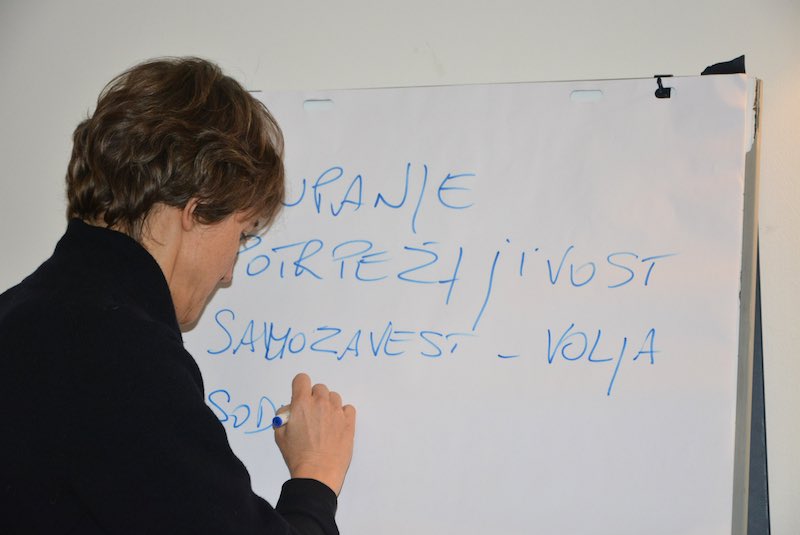 UPANJE
POTRPEŽLJIVOST
SAMOZAVEST – VOLJA
SOD